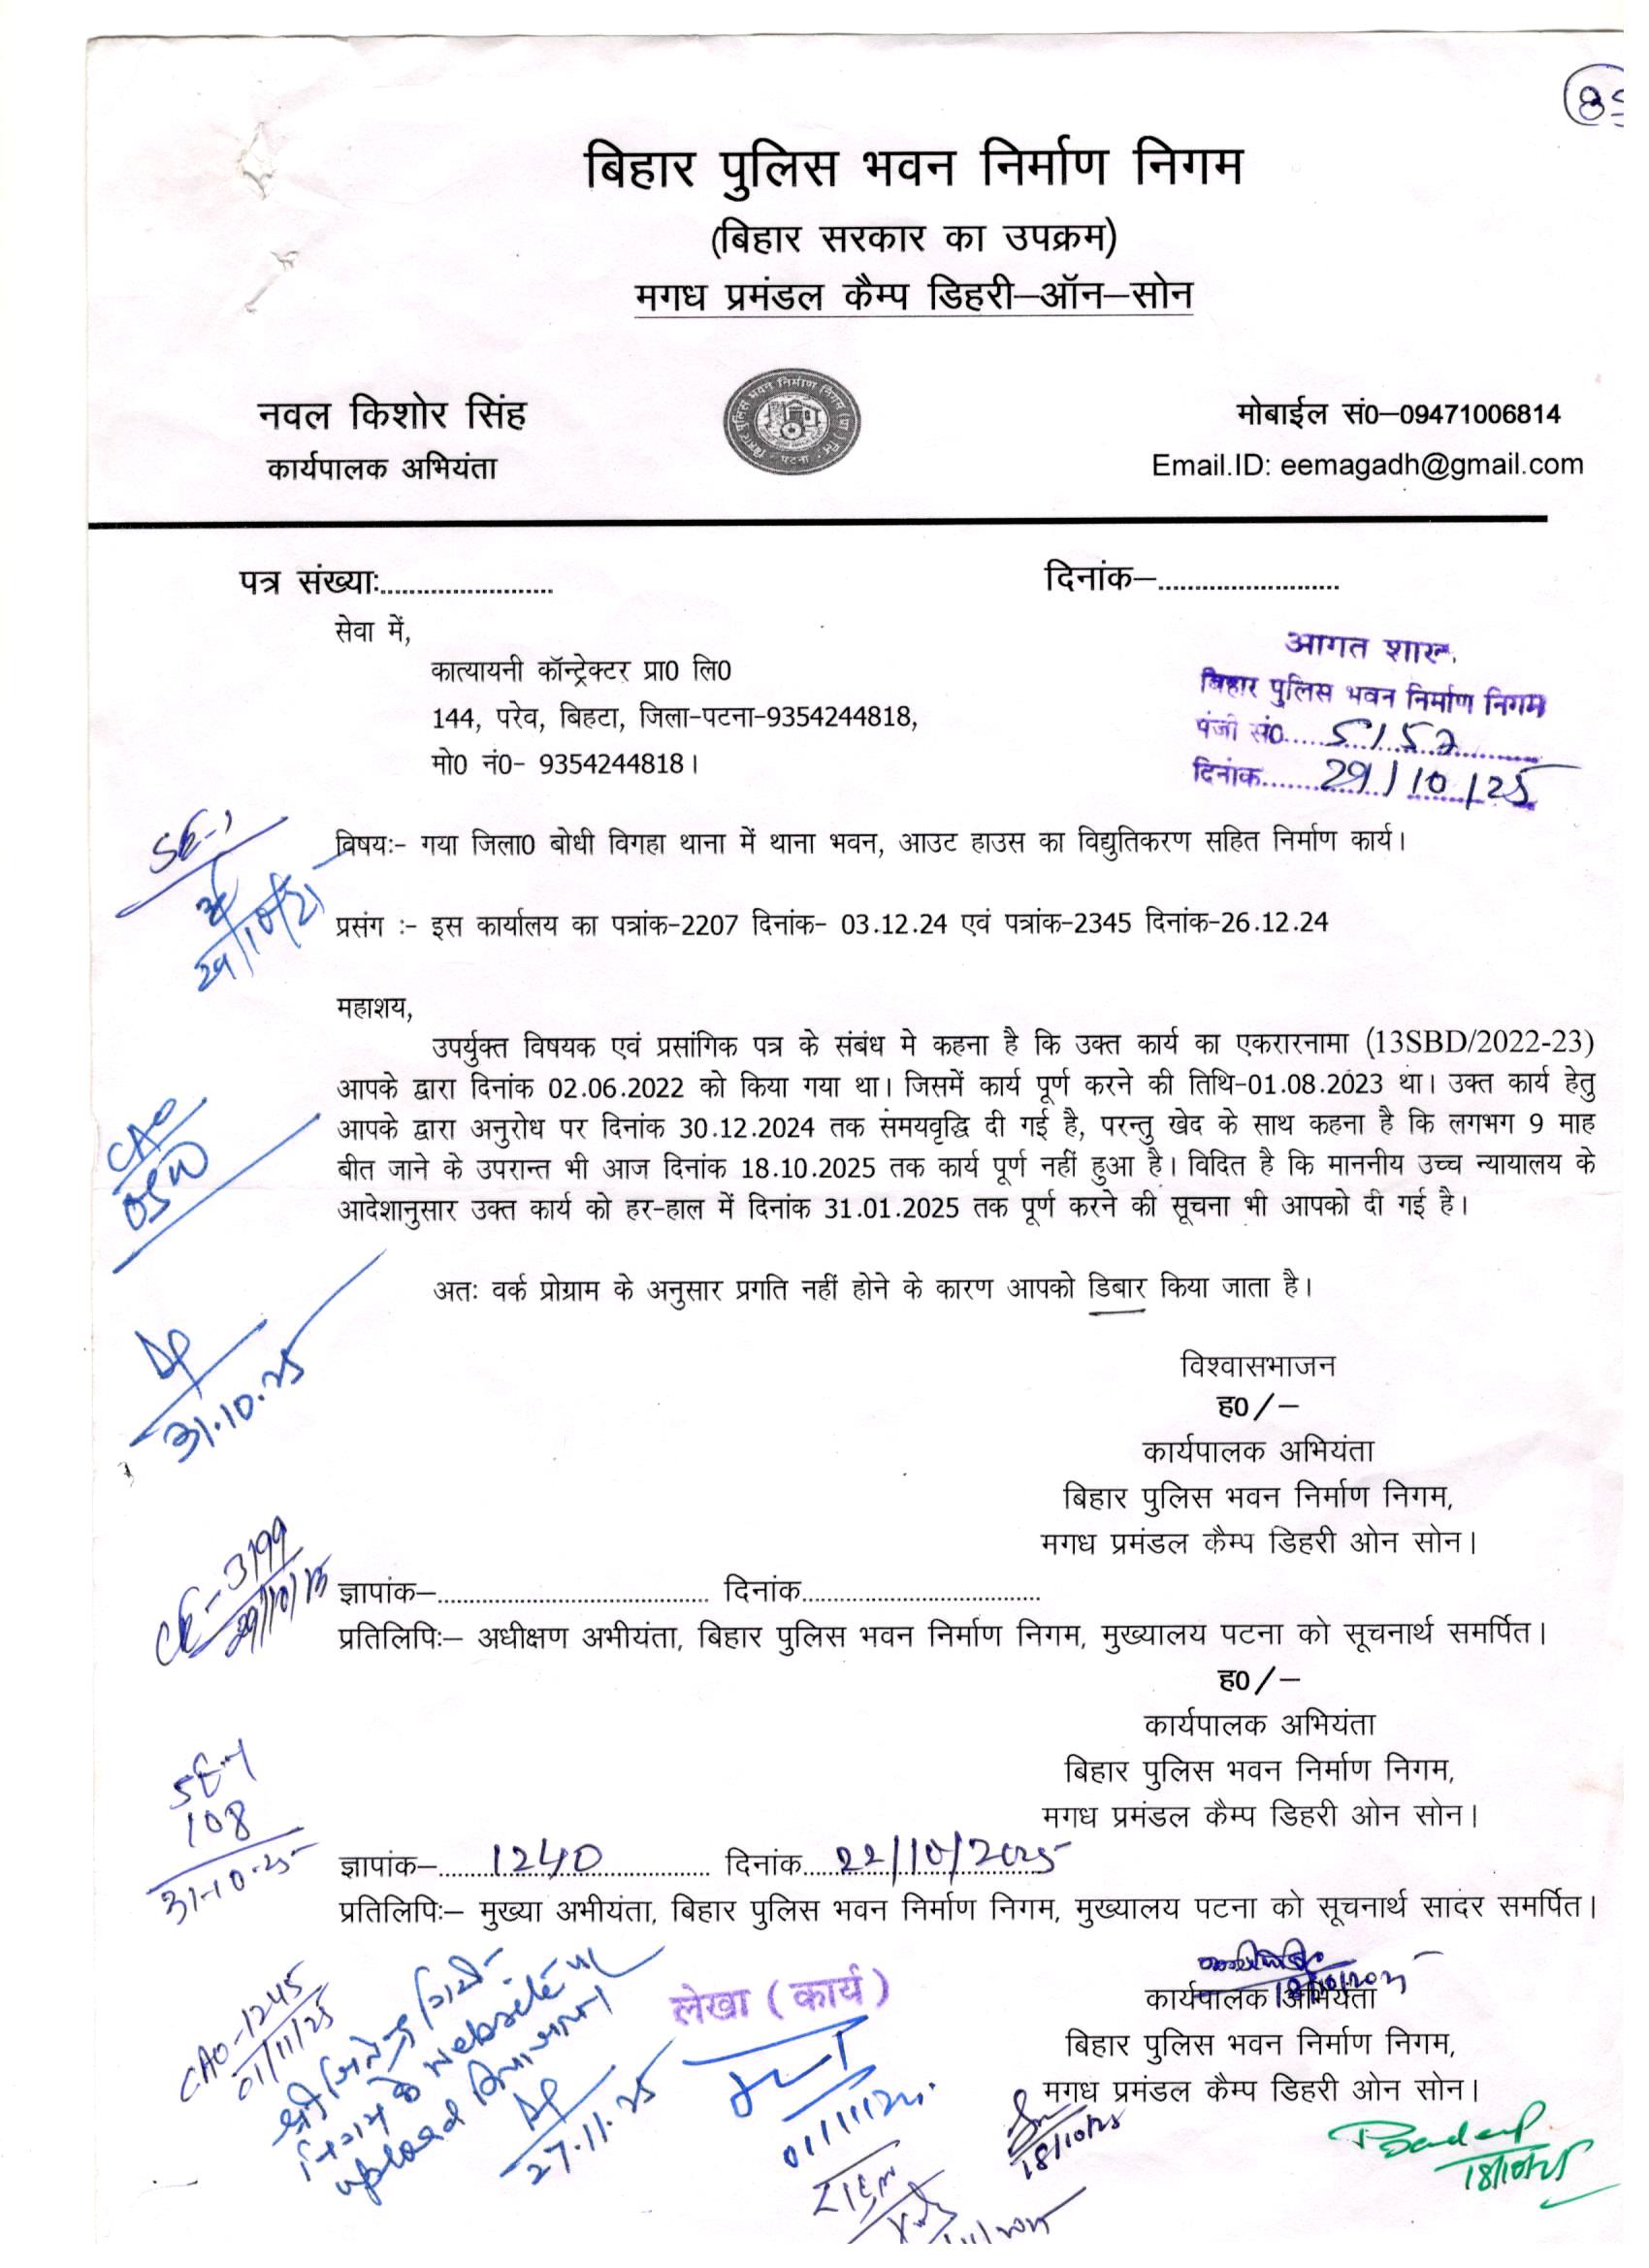 बिहार पुलिस भवन निर्माण निगम
(बिहार सरकार का उपक्रम)
मगध प्रमंडल कैम्प डिहरी–ऑन–सोन
नवल किशोर सिंह
कार्यपालक अभियंता
मोबाईल सं0–09471006814
Email.ID: eemagadh@gmail.com
पत्र संख्याः..........................
दिनांक–...........................
सेवा में,
कात्यायनी कॉन्ट्रेक्टर प्रा0 लि0
144, परेव, बिहटा, जिला-पटना-9354244818,
मो0 नं0- 9354244818।
आगत
बिहार पुलिस भवन निर्माण निगम
पंजी सं0..... 5152
दिनांक..... 29/10/25
SE-1
विषयः- गया जिला0 बोधी विगहा थाना में थाना भवन, आउट हाउस का विद्युतिकरण सहित निर्माण कार्य।
प्रसंग :- इस कार्यालय का पत्रांक-2207 दिनांक- 03.12.24 एवं पत्रांक-2345 दिनांक-26.12.24
महाशय,
उपर्युक्त विषयक एवं प्रसांगिक पत्र के संबंध मे कहना है कि उक्त कार्य का एकरारनामा (13SBD/2022-23)
आपके द्वारा दिनांक 02.06.2022 को किया गया था। जिसमें कार्य पूर्ण करने की तिथि-01.08.2023 था। उक्त कार्य हेतु
आपके द्वारा अनुरोध पर दिनांक 30.12.2024 तक समयवृद्धि दी गई है, परन्तु खेद के साथ कहना है कि लगभग 9 माह
बीत जाने के उपरान्त भी आज दिनांक 18.10.2025 तक कार्य पूर्ण नहीं हुआ है। विदित है कि माननीय उच्च न्यायालय के
आदेशानुसार उक्त कार्य को हर-हाल में दिनांक 31.01.2025 तक पूर्ण करने की सूचना भी आपको दी गई है।
CAO
अतः वर्क प्रोग्राम के अनुसार प्रगति नहीं होने के कारण आपको डिबार किया जाता है।
31.10.25
विश्वासभाजन
ह0/–
कार्यपालक अभियंता
बिहार पुलिस भवन निर्माण निगम,
मगध प्रमंडल कैम्प डिहरी ओन सोन।
CE-3199
29/10/25
ज्ञापांक–.......................................... दिनांक.....................................
प्रतिलिपिः– अधीक्षण अभीयंता, बिहार पुलिस भवन निर्माण निगम, मुख्यालय पटना को सूचनार्थ समर्पित।
ह0/–
कार्यपालक अभियंता
बिहार पुलिस भवन निर्माण निगम,
मगध प्रमंडल कैम्प डिहरी ओन सोन।
SE-1
108
31-10-25
ज्ञापांक–.......1240....... दिनांक....22/10/2025
प्रतिलिपिः– मुख्या अभीयंता, बिहार पुलिस भवन निर्माण निगम, मुख्यालय पटना को सूचनार्थ सादर समर्पित।
18/10/2025
कार्यपालक अभियंता
बिहार पुलिस भवन निर्माण निगम,
मगध प्रमंडल कैम्प डिहरी ओन सोन।
CAO-1245
01/11/25
निगम के website पर
upload
27.11.25
लेखा (कार्य)
18/10/25
18/10/25